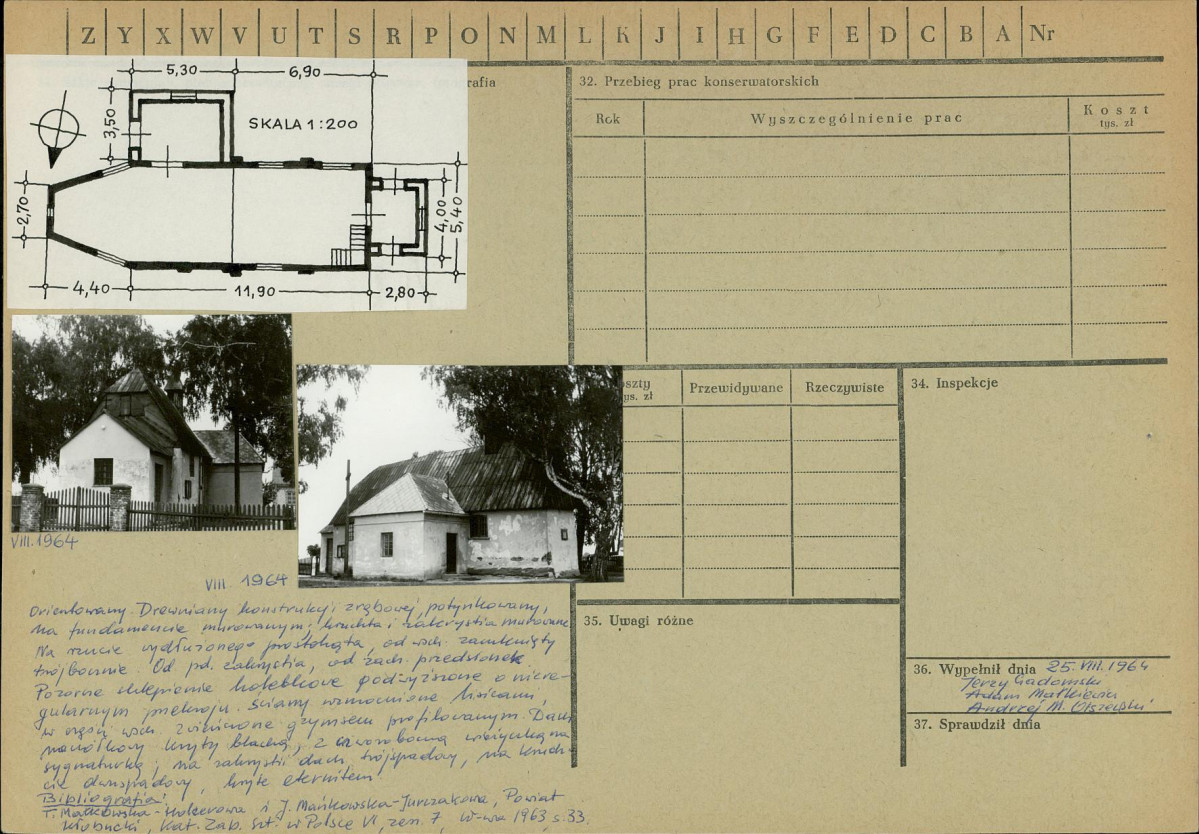 Z Y X W V U T S R P O N M L K J I H G F E D C B A Nr
5,30 6,90
3,50
SKALA 1:200
2,70
4,00
5,40
4,40 11,90 2,80
grafia
32. Przebieg prac konserwatorskich
Rok Wyszczególnienie prac Koszt
tys. zł
oszty Przewidywane Rzeczywiste
ys. zł
34. Inspekcje
VIII.1964
VIII 1964
Orientowany. Drewniany konstrukcji zrębowej, potynkowany,
na fundamencie murowanym; kruchta i zakrystia murowane.
Na rzucie wydłużonego prostokąta, od wsch. zamknięty
trójbocznie. Od pd. zakrystia, od zach. przedsionek.
Pozorne sklepienie kolebkowe podwyższone o niere-
gularnym przekroju. Ściany wzmocnione lisicami,
w części wsch. zwieńczone gzymsem profilowanym. Dach
kryty blachą, z czworoboczną wieżyczką na
sygnaturkę; na zakrystii dach trójspadowy, na kruch-
cie dwuspadowy, kryte eternitem.
Bibliografia:
T. Małkowska-Holcerowa i J. Mańkowska-Jurczakowa, Powiat
Kłobucki, Kat. Zab. Szt. w Polsce VI, zesz. 7, W-wa 1963 s. 33.
35. Uwagi różne
36. Wypełnił dnia 25.VIII.1964
Jerzy Gadomski
Adam Małkiewicz
Andrzej M. Olszewski
37. Sprawdził dnia